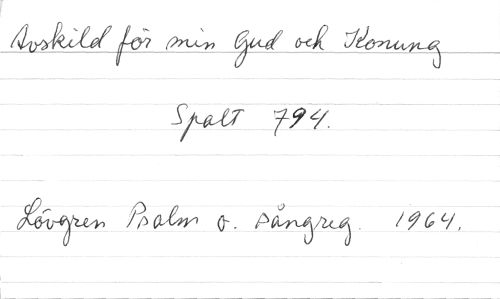 Avskild för min Gud och Konung
Spalt 794.
Lövgren Psalm o. sångreg. 1964.